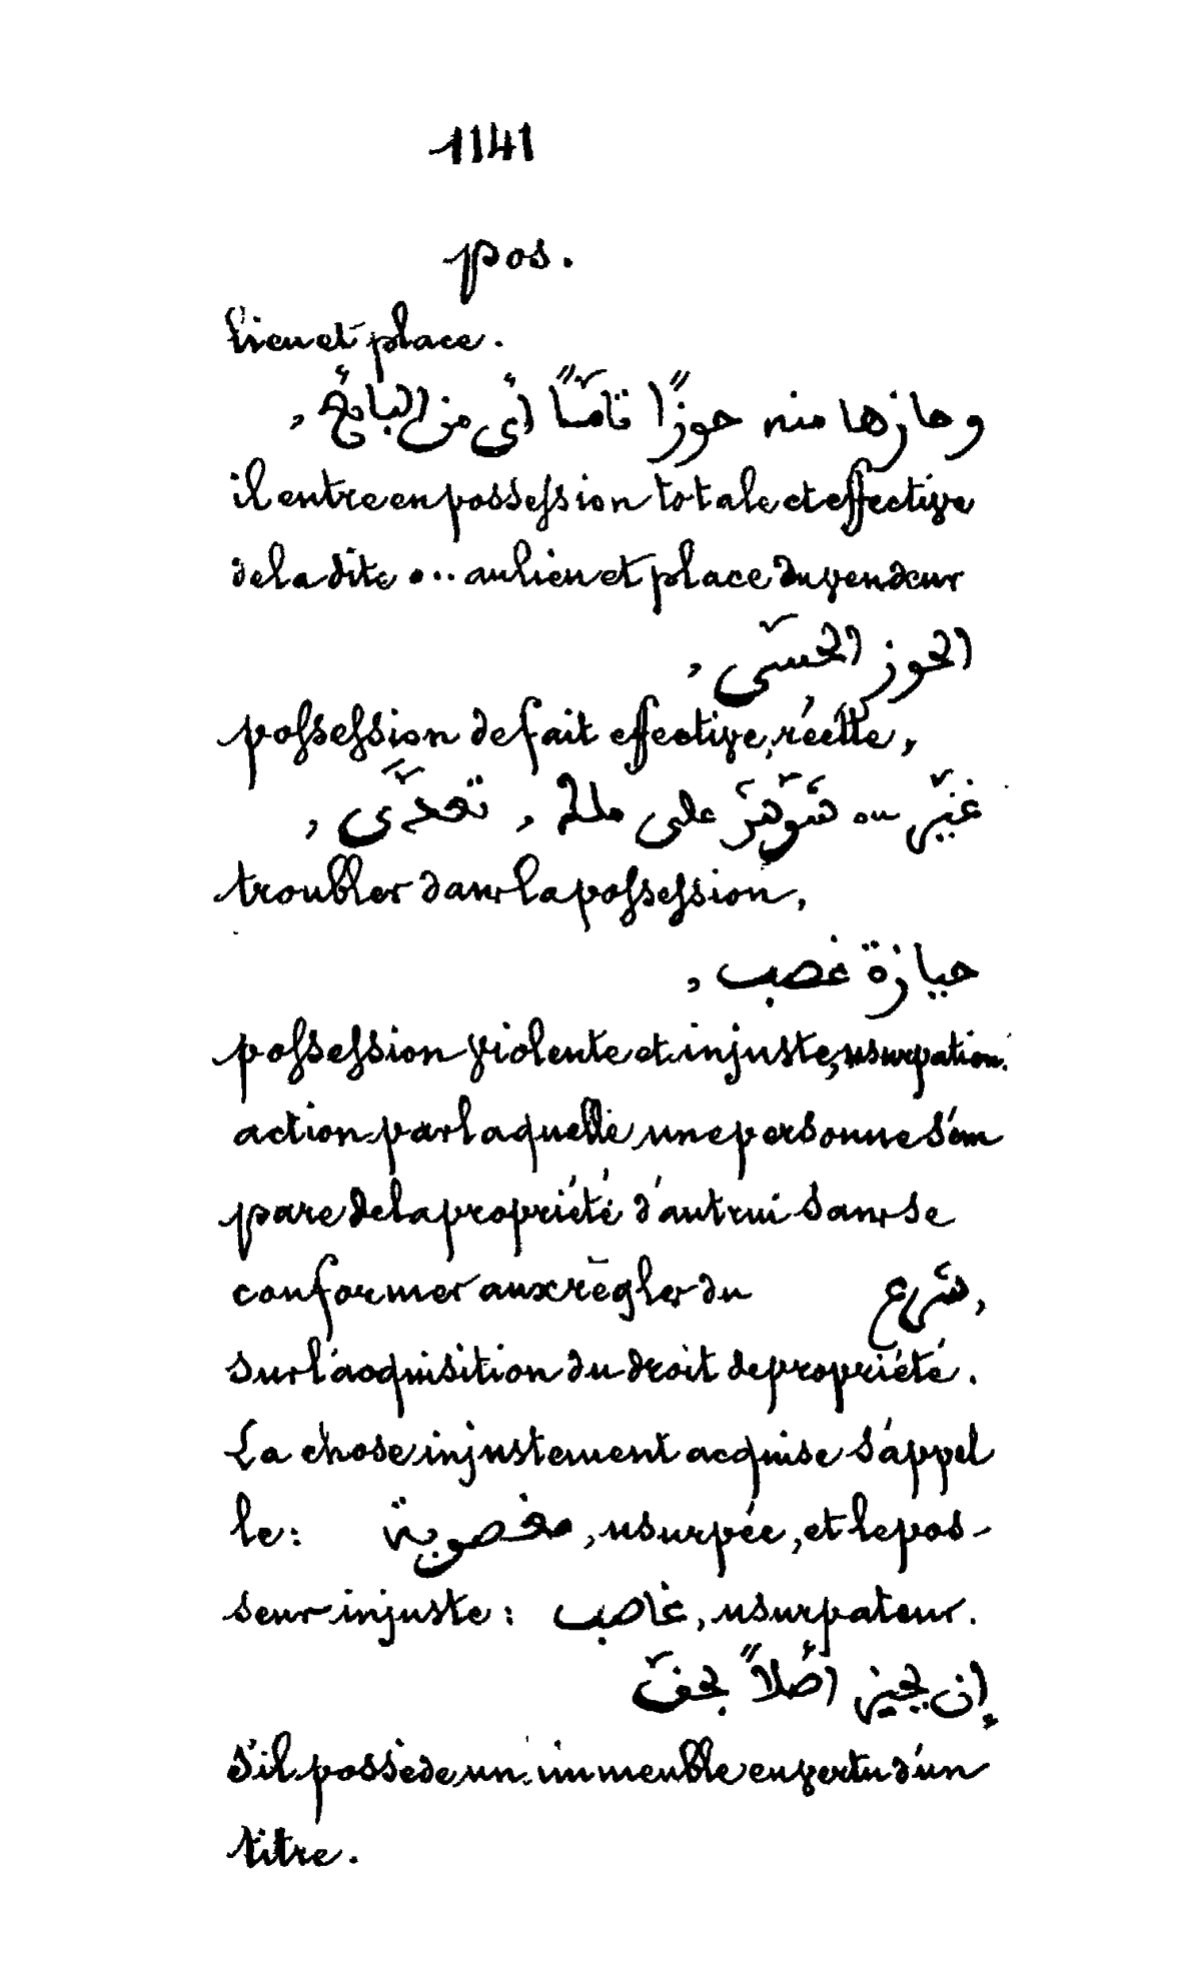 1141
pos.
lieu et place.
وحازها منه حوزًا تامًّا أي من البائع,
il entre en possession totale et effective
de la dite ... au lieu et place du vendeur
الحوز الحسّى,
possession de fait effective, réelle,
غيّر ou شَوّش على ملك, تعدّى,
troubler dans la possession,
حيازة غصب,
possession violente et injuste, usurpation.
action par laquelle une personne s'em
pare de la propriété d'autrui sans se
conformer aux règles du شرع,
sur l'acquisition du droit de propriété.
La chose injustement acquise s'appel
le: مغصوبة, usurpée, et le pos-
seur injuste: غاصب, usurpateur.
إن يحيز أصلاً بحقّ
S'il possède un immeuble en vertu d'un
titre.